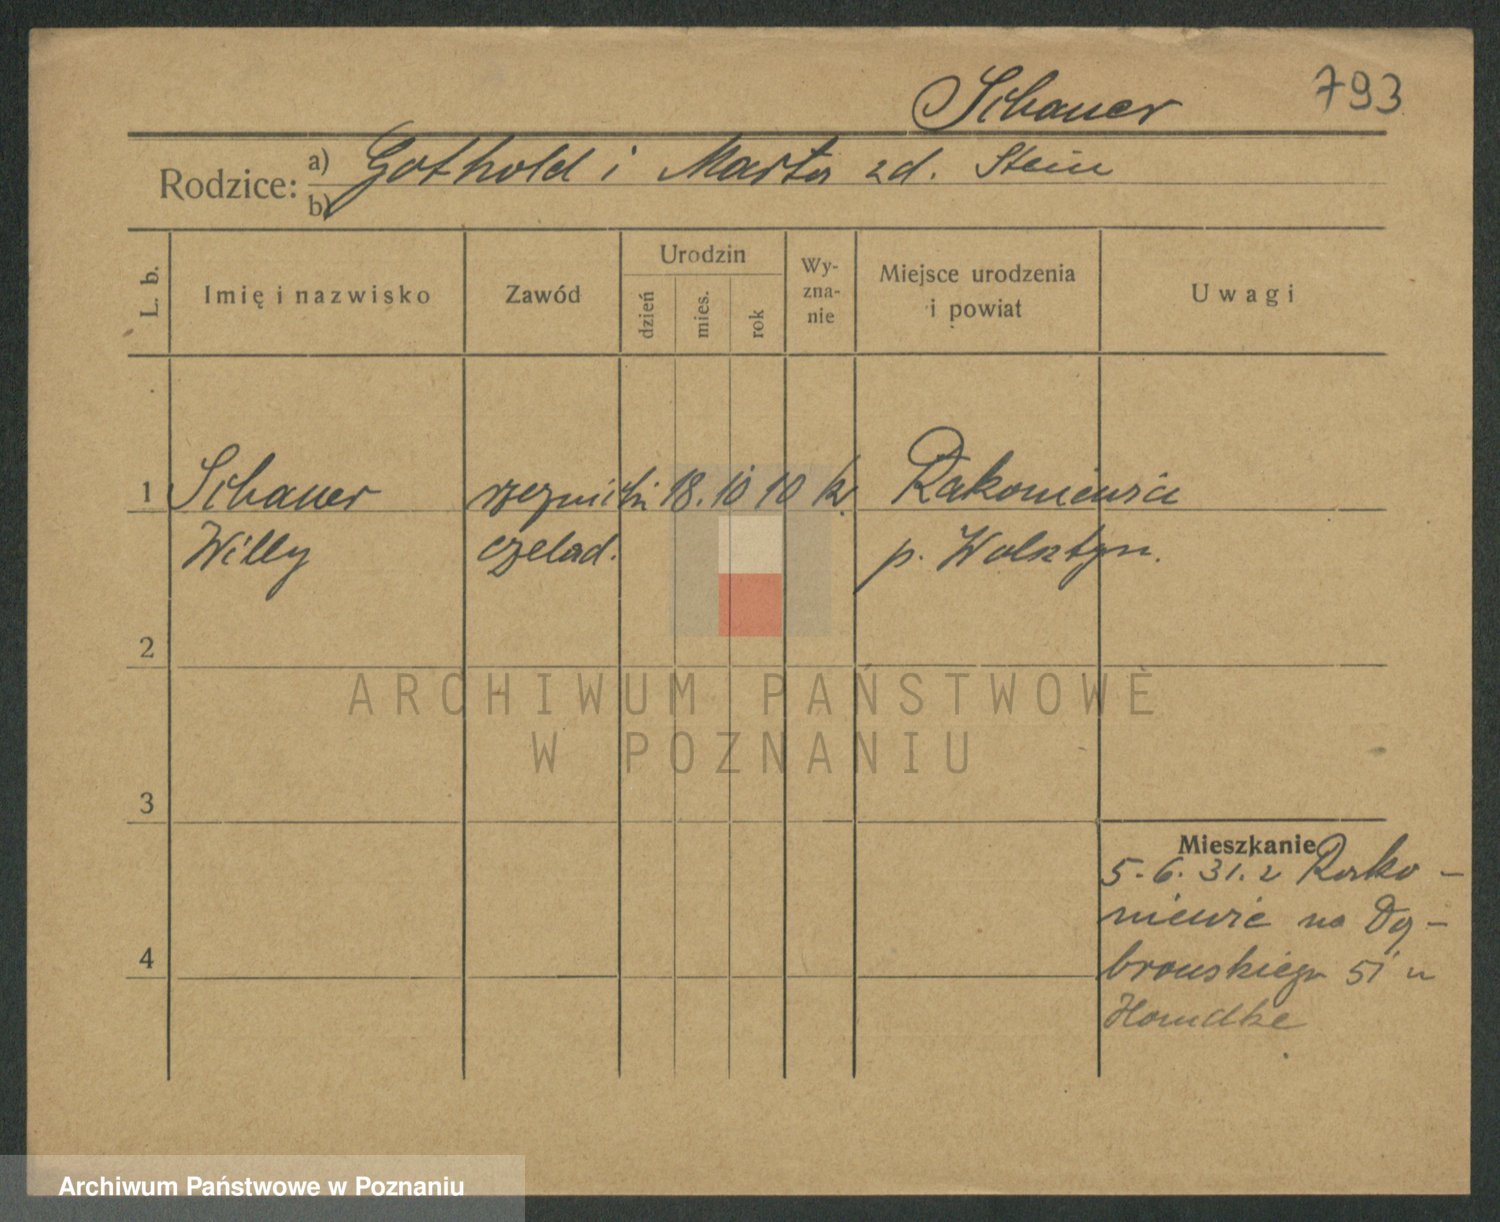 Schauer 793
Rodzice: a) Gothold i Marta zd. Stein
b)
L. b.
Imię i nazwisko
Zawód
Urodzin
dzień
mies.
rok
Wy-
zna-
nie
Miejsce urodzenia
i powiat
Uwagi
1 Schauer rzeźnicki 18. 10 10 k. Rakoniewice
Willy czelad. p. Wolsztyn.
2
ARCHIWUM PAŃSTWOWE
W POZNANIU
3
Mieszkanie
5. 6. 31. z Rako-
niewic na Dą-
browskiego 51 u
4
Archiwum Państwowe w Poznaniu